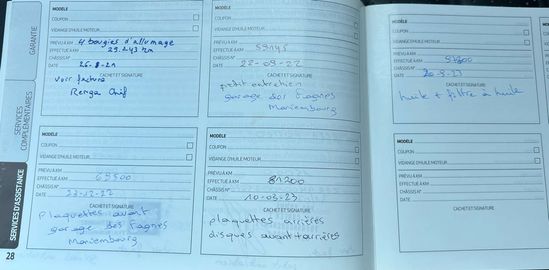 GARANTIE
SERVICES COMPLÉMENTAIRES
SERVICES D'ASSISTANCE
28
MODÈLE
COUPON
VIDANGE D'HUILE MOTEUR
PRÉVU À KM 4 bougies d'allumage
EFFECTUÉ À KM 29.243 km
CHÂSSIS N°
DATE 26-8-21
CACHET ET SIGNATURE
voir facture
MODÈLE
COUPON
VIDANGE D'HUILE MOTEUR
PRÉVU À KM
EFFECTUÉ À KM 59145
CHÂSSIS N°
DATE 22-09-22
CACHET ET SIGNATURE
petit entretien
garage des Fagnes
Mariembourg
MODÈLE
COUPON
VIDANGE D'HUILE MOTEUR
PRÉVU À KM
EFFECTUÉ À KM
CHÂSSIS N°
DATE
CACHET ET SIGNATURE
huile + filtre à huile
MODÈLE
COUPON
VIDANGE D'HUILE MOTEUR
PRÉVU À KM
EFFECTUÉ À KM 69500
CHÂSSIS N°
DATE 23-12-22
CACHET ET SIGNATURE
plaquettes avant
garage des Fagnes
Mariembourg
MODÈLE
COUPON
VIDANGE D'HUILE MOTEUR
PRÉVU À KM
EFFECTUÉ À KM 81200
CHÂSSIS N°
DATE 10-03-23
CACHET ET SIGNATURE
plaquettes arrières
disques avant+arrières
MODÈLE
COUPON
VIDANGE D'HUILE MOTEUR
PRÉVU À KM
EFFECTUÉ À KM
CHÂSSIS N°
DATE
CACHET ET SIGNATURE